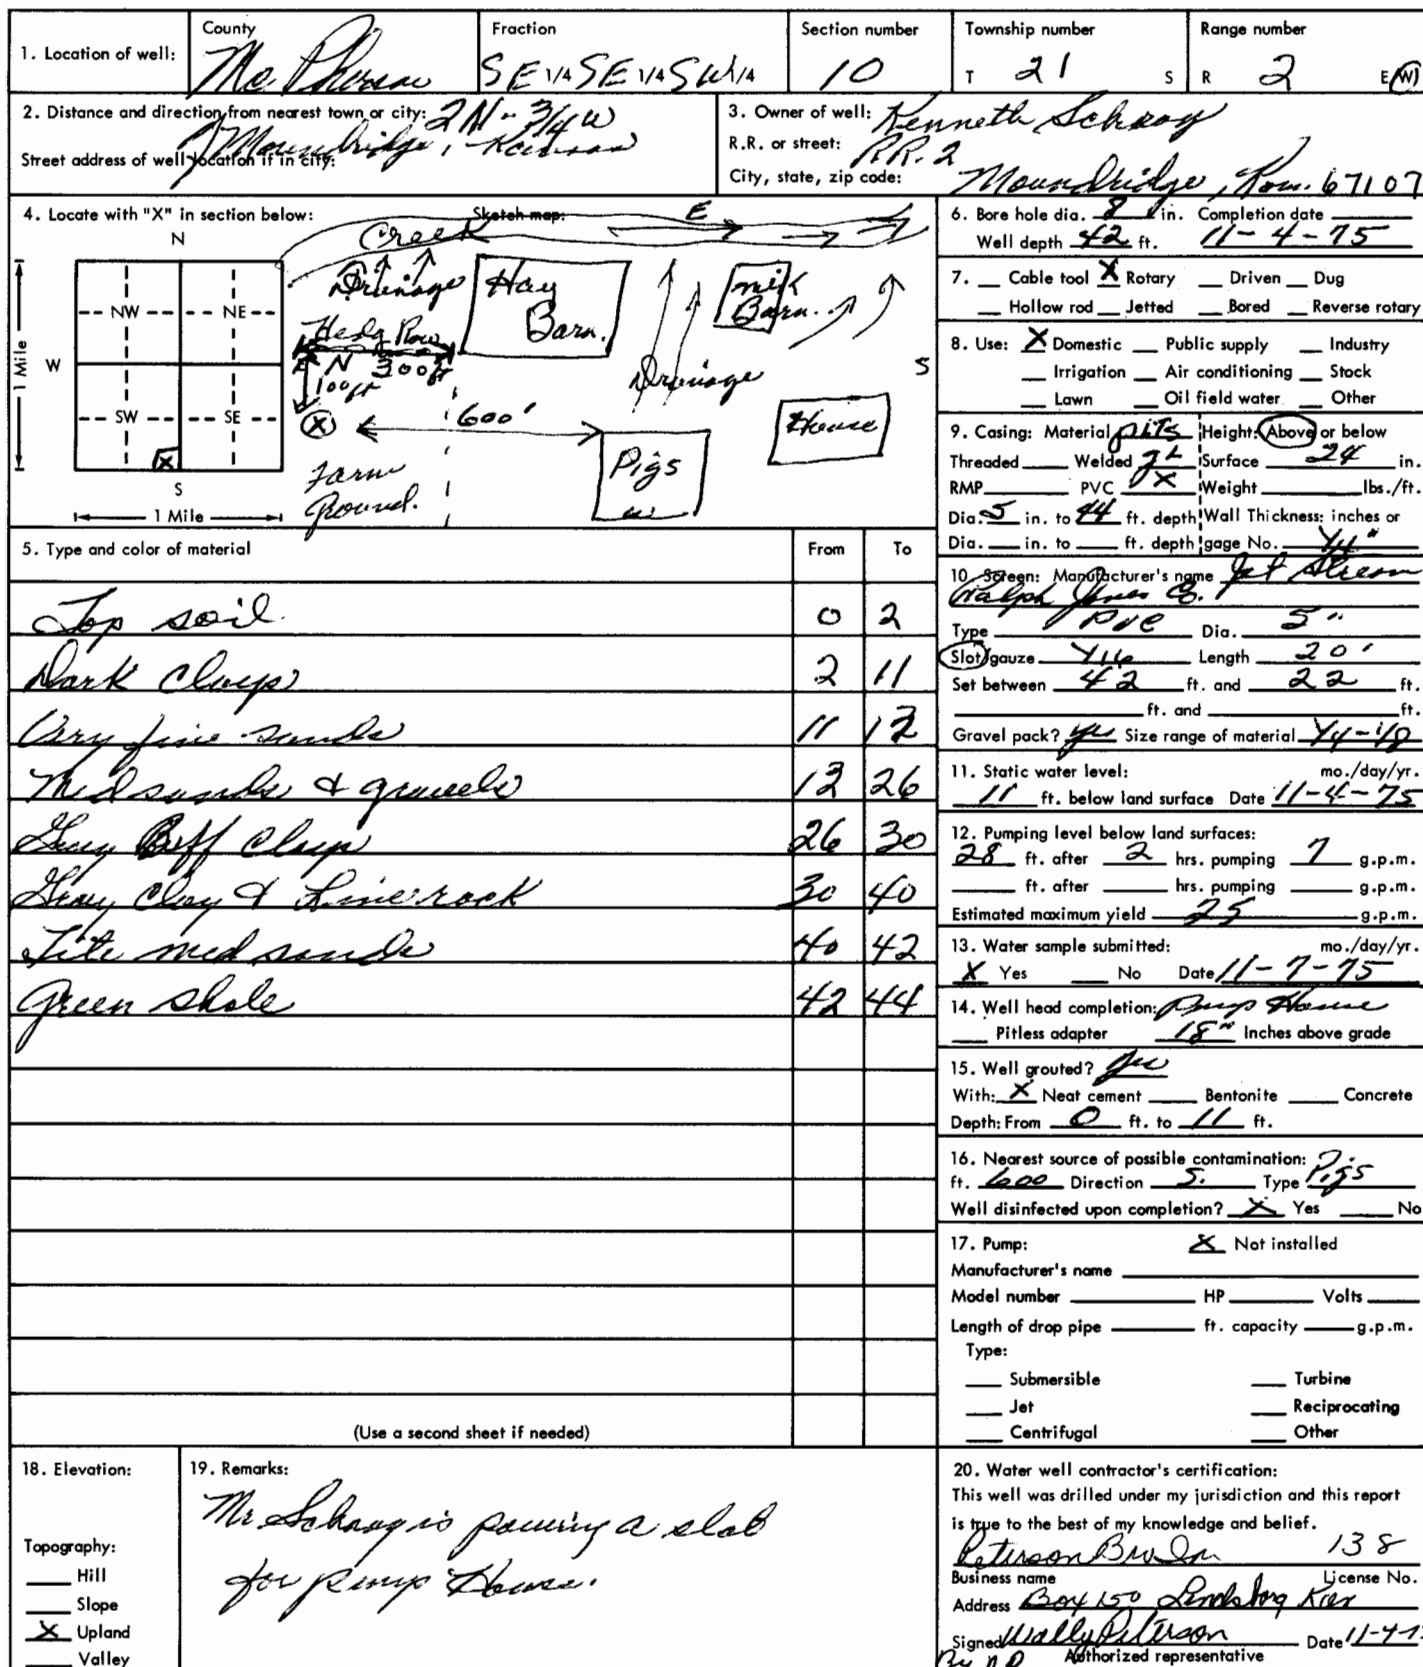 1. Location of well:
County
Mc Pherson
Fraction
SE 1/4 SE 1/4 SW 1/4
Section number
10
Township number
T 21 S
Range number
R 2 E (W)
2. Distance and direction from nearest town or city: 2N - 3/4 W
Moundridge, Kansas
Street address of well location if in city:
3. Owner of well: Kenneth Schrag
R.R. or street: RR. 2
City, state, zip code: Moundridge, Kan. 67107
4. Locate with "X" in section below:
Sketch map:
N
NW NE
W
SW SE
X
S
1 Mile
1 Mile
Creek
E
Drainage
Hay
Barn.
milk
Barn.
Hedg Row
N
300 ft
100 ft
Drainage
S
X
600'
House
Pigs
W
Farm
Ground.
5. Type and color of material From To
Top soil. 0 2
Dark Clays 2 11
Very fine sands 11 12
Med sands & gravels 12 26
Gray Buff Clays 26 30
Gray Clay & Lime rock 30 40
Tite med sands 40 42
Green shale 42 44
(Use a second sheet if needed)
6. Bore hole dia. 8 in. Completion date
Well depth 42 ft. 11-4-75
7. Cable tool X Rotary Driven Dug
Hollow rod Jetted Bored Reverse rotary
8. Use: X Domestic Public supply Industry
Irrigation Air conditioning Stock
Lawn Oil field water Other
9. Casing: Material Height: Above or below
Threaded Welded Surface 24 in.
RMP PVC X Weight lbs./ft.
Dia. 5 in. to 44 ft. depth Wall Thickness: inches or
Dia. in. to ft. depth gage No. 1/4"
10. Screen: Manufacturer's name Jet Stream
Ralph Jones Co.
Type PVC Dia. 5"
Slot/gauze 1/16 Length 20'
Set between 42 ft. and 22 ft.
ft. and ft.
Gravel pack? yes Size range of material 1/4-1/8
11. Static water level: mo./day/yr.
11 ft. below land surface Date 11-4-75
12. Pumping level below land surfaces:
28 ft. after 2 hrs. pumping 7 g.p.m.
ft. after hrs. pumping g.p.m.
Estimated maximum yield 25 g.p.m.
13. Water sample submitted: mo./day/yr.
X Yes No Date 11-7-75
14. Well head completion: Pump House
Pitless adapter 18" Inches above grade
15. Well grouted? yes
With: X Neat cement Bentonite Concrete
Depth: From 0 ft. to 11 ft.
16. Nearest source of possible contamination:
ft. 600 Direction S. Type Pigs
Well disinfected upon completion? X Yes No
17. Pump: X Not installed
Manufacturer's name
Model number HP Volts
Length of drop pipe ft. capacity g.p.m.
Type:
Submersible Turbine
Jet Reciprocating
Centrifugal Other
18. Elevation:
Topography:
Hill
Slope
X Upland
Valley
19. Remarks:
Mr Schrag is pouring a slab
for pump House.
20. Water well contractor's certification:
This well was drilled under my jurisdiction and this report
is true to the best of my knowledge and belief.
Peterson Bro Inc 138
Business name License No.
Address Box 150 Lindsborg Kan
Signed Wally Peterson Date 11-4-7
By Authorized representative